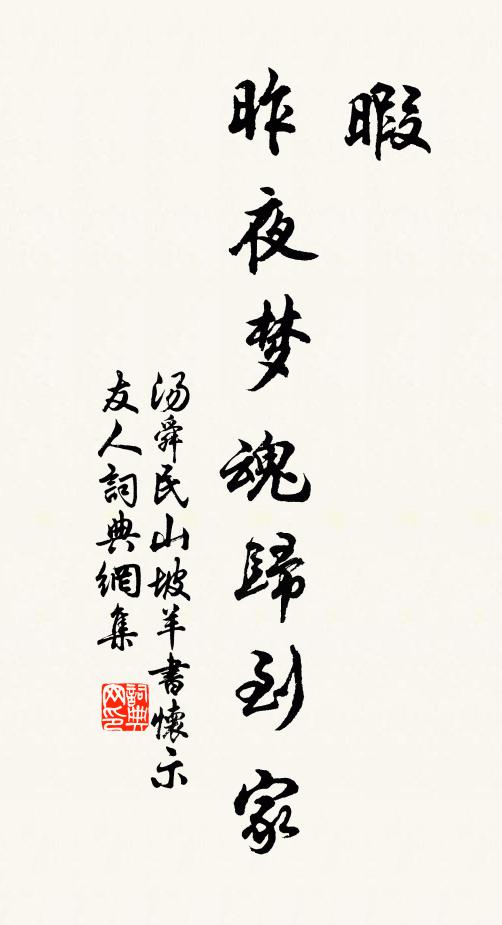 暇
昨夜梦魂歸到家
汤舜民山坡羊書懷示
友人詞典網集
詞典
网印